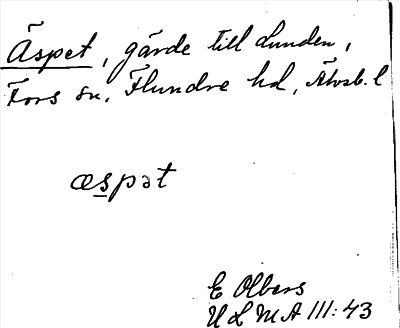 Äspet, gärde till Lunden,
Fors sn. Flundre hd, Älvsb. l
æspət
E Olbers
ULMA III:43